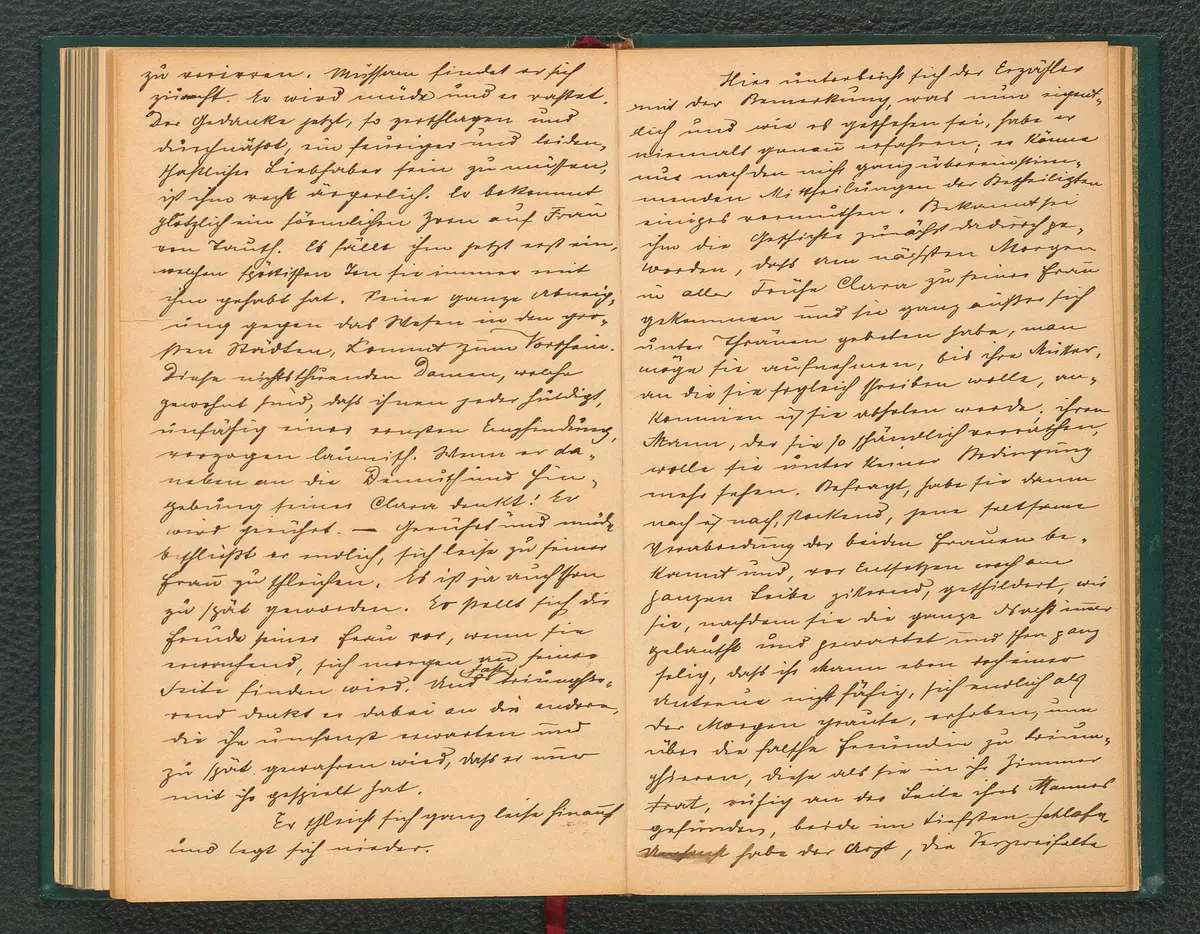 zu verirren. Mühsam findet er sich
zurecht. Er wird müde und er rastet.
Der Gedanke jetzt, so zerschlagen und
durchnäßt, ein feuriger und leiden-
schaftlicher Liebhaber sein zu müssen,
ist ihm recht ärgerlich. Er bekommt
plötzlich ein förmlichen Zorn auf Frau
von Tauth. Es fällt ihm jetzt erst ein,
welchen spöttischen Ton sie immer mit
ihm gehabt hat. Seine ganze Abneig-
ung gegen das Wesen in den gro-
ßen Städten, kommt zum Vorschein.
Diese nichtsthuenden Damen, welche
gewohnt sind, daß ihnen jeder huldigt,
unfähig einer ernsten Empfindung,
verzogen launisch. Wenn er da-
neben an die Demuth und Hin-
gebung seiner Clara denkt! Er
wird gerührt. — Gerührt und müde
beschließt er endlich, sich leise zu seiner
Frau zu schleichen. Es ist ja auch schon
zu spät geworden. Er stellt sich die
Freude seiner Frau vor, wenn sie
erwachend, sich morgen an seiner
Seite finden wird. Und fast triumphie-
rend denkt er dabei an die andere,
die ihn umsonst erwarten und
zu spät gewahren wird, daß er nur
mit ihr gespielt hat.
Er schleicht sich ganz leise hinauf
und legt sich nieder.
Hier unterbricht sich der Erzähler
mit der Bemerkung, was nun eigent-
lich und wie es geschehen sei, habe er
niemals genau erfahren; er könne
nur nach den nicht ganz übereinstim-
menden Mittheilungen der Betheiligten
einiges vermuthen. Bekannt sei
ihm die Geschichte zunächst dadurch ge-
worden, daß am nächsten Morgen
in aller Frühe Clara zu seiner Frau
gekommen und sie ganz außer sich
unter Thränen gebeten habe, man
möge sie aufnehmen, bis ihre Mutter,
an die sie sogleich schreiben wolle, an-
kommen u sie abholen werde; ihren
Mann, der sie so schändlich verrathen,
wolle sie unter keiner Bedingung
mehr sehen. Befragt, habe sie dann
nach u nach, stockend, jene seltsame
Verabredung der beiden Frauen be-
kannt und, vor Entsetzen noch am
ganzen Leibe zitternd, geschildert, wie
sie, nachdem sie die ganze Nacht immer
gelauscht und gewartet und schon ganz
selig, daß ihr Mann eben doch einer
Untreue nicht fähig, sich endlich als
der Morgen graute, erhoben, um
über die falsche Freundin zu trium-
phieren, diese als sie in ihr Zimmer
trat, ruhig an der Seite ihres Mannes
gefunden, beide im tiefsten Schlafe.
habe der Arzt, die Verzweifelte